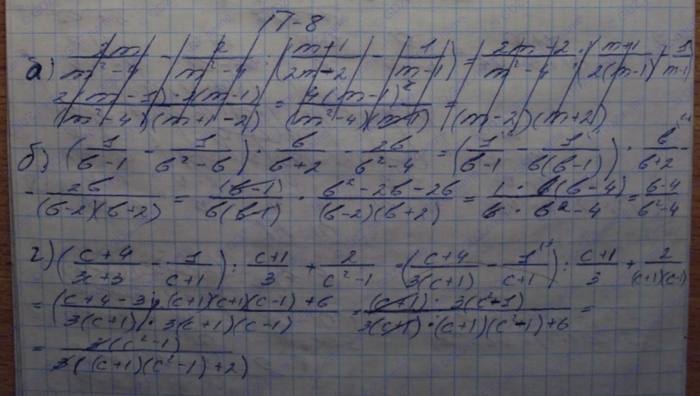 П-8
а) 2m/(m²-4) - 2/(m²-4) · ((m+1)/(2m-2) - 1/(m-1)) = (2m-2)/(m²-4) · ((m+1)/(2(m-1)) - 1/(m-1))
2(m-1)·2(m-1)/((m²-4)(m+1-2)) = 4(m-1)²/((m²-4)(m-1)) = /((m-2)(m+2))
б) (1/(b-1) - 1/(b²-b)) · b/(b+2) - 2b/(b²-4) = (1/(b-1) - 1/(b(b-1))) · b/(b+2) -
- 2b/((b-2)(b+2)) = (b-1)/(b(b-1)) · (b²-2b-2b)/((b-2)(b+2)) = (1·b(b-4))/(b·b²-4) = (b-4)/(b²-4)
г) ((c+4)/(3c+3) - 1/(c+1)) : (c+1)/3 + 2/(c²-1) = ((c+4)/(3(c+1)) - 1/(c+1)) : (c+1)/3 + 2/((c+1)(c-1))
= (c+4-3)·(c+1)(c+1)(c-1)+6/(3(c+1)·3(c+1)(c-1)) = (c+1)·3(c²-1)/(3(c+1)·(c+1)(c²-1)+6) =
= 3(c²-1)/(3((c+1)(c²-1)+2))